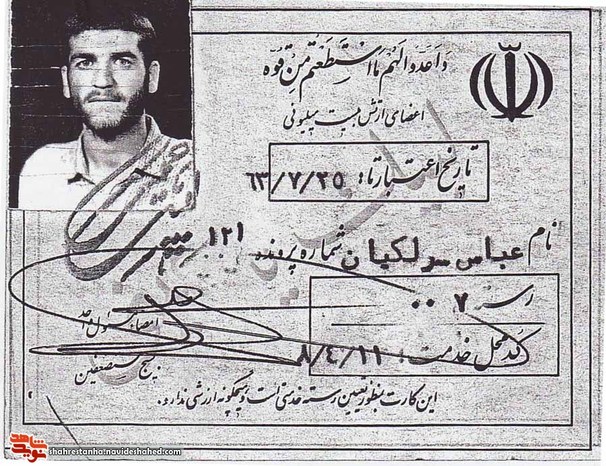 وَاَعِدّوالَهُم مَااسْتَطَعْتُم مِن قُوَّه
اعضای ارتش بیست میلیونی
تاریخ اعتبار تا: ۶۳/۷/۲۵
نام عباس سرلکیان شماره پرونده ۱۲۱
رسته ۷ ۰۰
کد محل خدمت: ۸/۴/۱۱
امضاء مسئول واحد
بسیج مستضعفین
این کارت بمنظور تعیین رسته خدمتی است و هیچگونه ارزشی ندارد.
نوید شاهد
shahrestanha.navideshahed.com